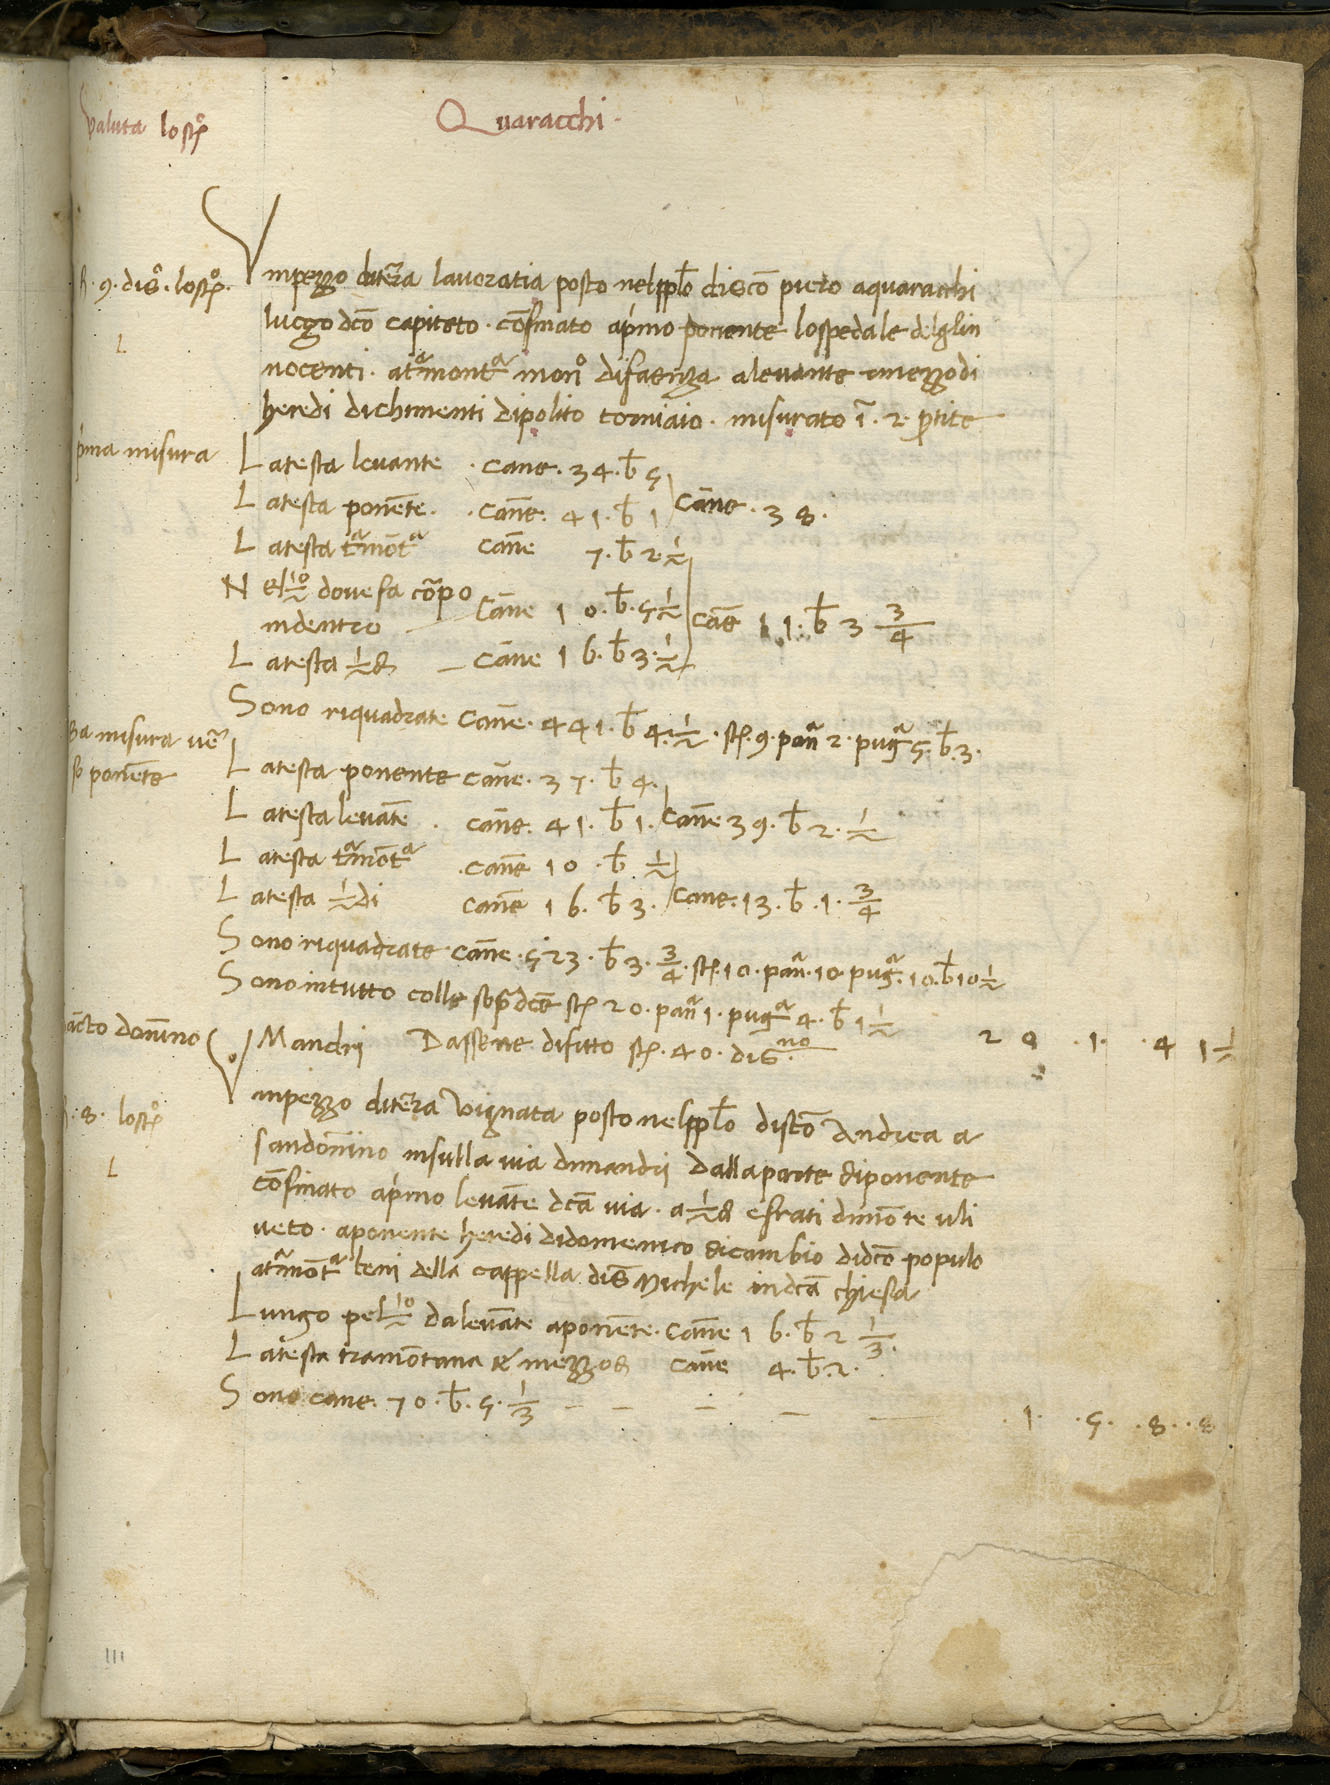 Valuta lo str̃o
Quaracchi
f. 9. di s.o lo str̃o
Vmpezzo diterra lavoratia posto nelpp̃lo discõ piero aquaracchi
luogo dcõ capitoto. cõfinato aprimo ponente lospedale deglin
L
nocenti. atr̃amont.a mon.o difaenza alevante emezzodi
heredi dichimenti dipolito torniaio. misurato ĩ. 2. p̃tite
p̃ma misura
Latesta levante. cane. 34. b̃ 5
Latesta ponẽte. cãne. 41. b̃ 1 cãne. 38.
Latesta tr̃amõt.a cãne 7. b̃ 2 1/2
Nel 1/2 o dove fa cõpo cãne 10. b̃. 5 1/2 cãe 11. b̃ 3 3/4
indentro
Latesta 1/2 di cãne 16. b̃ 3. 1/2
Sono riquadrate cãne. 441. b̃ 4. 1/2. st̃. 9. pañ 2. pug̃ 5. b̃. 3.
2a misura ver̃
so ponẽte
Latesta ponente cãne. 37. b̃ 4.
Latesta levãte. cãne. 41. b̃ 1. cãne 39. b̃ 2. 1/2
Latesta tr̃amõt.a cãne 10. b̃ 1/2
Latesta 1/2 di cãne 16. b̃ 3. cane. 13. b̃. 1. 3/4
Sono riquadrate. cãne. 523. b̃ 3. 3/4. st̃. 10. pañ. 10. pug̃. 10. b̃ 10 1/2
Sono intutto colle sop̃dcẽ st̃ 20. pañ 1. pug̃ 4. b̃ 1 1/2
20 .1. .4 1 1/2
sãcto donnino
Mandri Dassene difitto st̃. 40. di g.no
Vmpezzo diterra vignata posto nelpp̃lo discõ Andrea a
f. 8. lo str̃o
sandonnino insulla via dimandri dallaparte diponente
L
cõfinato aprimo levãte dcã via. a 1/2 di efrati dimõte uli
veto. aponente heredi didomenico dicambio didcõ populo
atr̃amõt.a beni della cappella dis̃ Michele indcã chiesa
Lungo pel 1/2 o dalevãte aponẽte. cãne 16. b̃ 2 1/3.
Latesta tramõtana & mezzodi cãne 4. b̃. 2.
Sono cane. 70. b̃. 5. 1/3
.1. .5. .8. .8
111